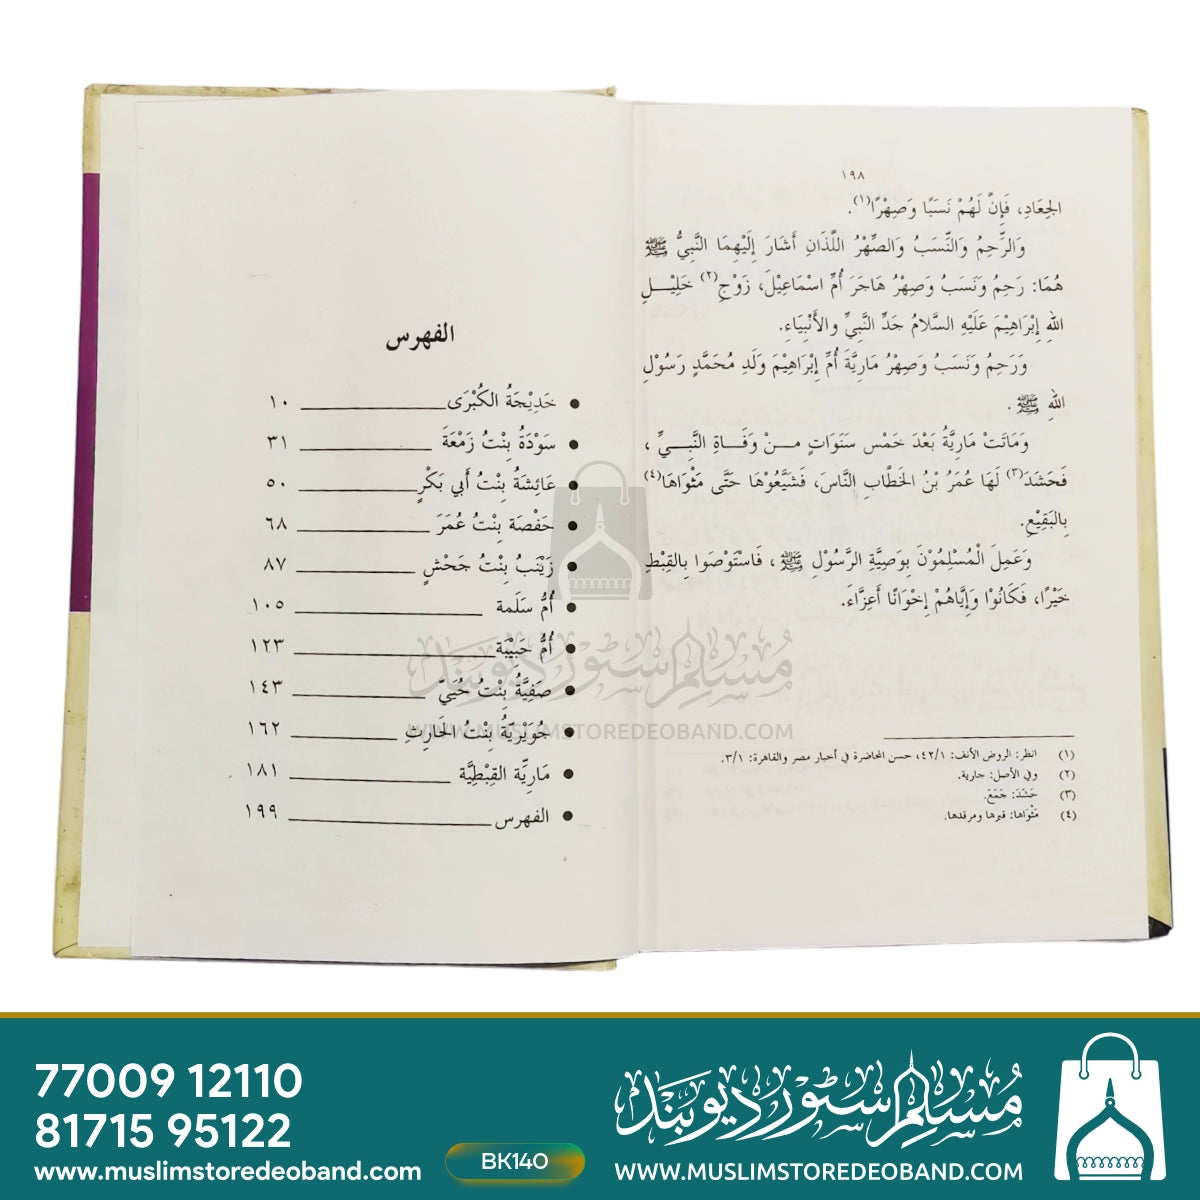 ١٩٨
الجِعَادِ، فَإِنَّ لَهُمْ نَسَبًا وَصِهْرًا(١).
وَالرَّحِمُ وَالنَّسَبُ وَالصِّهْرُ اللَّذَانِ أَشَارَ إِلَيْهِمَا النَّبِيُّ ﷺ
هُمَا: رَحِمُ وَنَسَبُ وَصِهْرُ هَاجَرَ أُمِّ اسْمَاعِيْلَ، زَوْجِ(٢) خَلِيْلِ
اللهِ إِبْرَاهِيْمَ عَلَيْهِ السَّلَامُ جَدِّ النَّبِيِّ والأَنْبِيَاءِ.
وَرَحِمُ وَنَسَبُ وَصِهْرُ مَارِيَّةَ أُمِّ إِبْرَاهِيْمَ وَلَدِ مُحَمَّدٍ رَسُوْلِ
اللهِ ﷺ .
وَمَاتَتْ مَارِيَّةُ بَعْدَ خَمْسِ سَنَوَاتٍ مِنْ وَفَاةِ النَّبِيِّ ،
فَحَشَدَ(٣) لَهَا عُمَرُ بْنُ الخَطَّابِ النَّاسَ، فَشَيَّعُوْهَا حَتَّى مَثْوَاهَا(٤)
بِالبَقِيْعِ.
وَعَمِلَ الْمُسْلِمُوْنَ بِوَصِيَّةِ الرَّسُوْلِ ﷺ ، فَاسْتَوْصَوا بِالقِبْطِ
خَيْرًا، فَكَانُوْا وَإِيَّاهُمْ إِخْوَانًا أَعِزَّاءَ.
(١) انظر: الروض الأنف: ٤٢/١، حسن المحاضرة في أخبار مصر والقاهرة: ٣/١.
(٢) وفي الأصل: جارية.
(٣) حَشَدَ: جَمَعَ.
(٤) مَثْوَاها: قبرها ومرقدها.
الفهرس
● خَدِيْجَةُ الكُبْرَى ١٠
● سَوْدَةُ بِنْتُ زَمْعَةَ ٣١
● عَائِشَةُ بِنْتُ أَبي بَكْرٍ ٥٠
● حَفْصَة بِنْتُ عُمَرَ ٦٨
● زَيْنَبُ بِنْتُ جَحْشٍ ٨٧
● أُمُّ سَلَمة ١٠٥
● أُمُّ حَبِيْبَة ١٢٣
● صَفِيَّةُ بِنْتُ حُيَيّ ١٤٣
● جُوَيْرِيَّةُ بِنْتُ الحَارِثِ ١٦٢
● مَارِيِّة القِبْطِيَّة ١٨١
● الفهرس ١٩٩
مُسلِم سٹور دیوبند
WWW.MUSLIMSTOREDEOBAND.COM
77009 12110
81715 95122
www.muslimstoredeoband.com
BK140
مُسلِم سٹور دیوبند
WWW.MUSLIMSTOREDEOBAND.COM